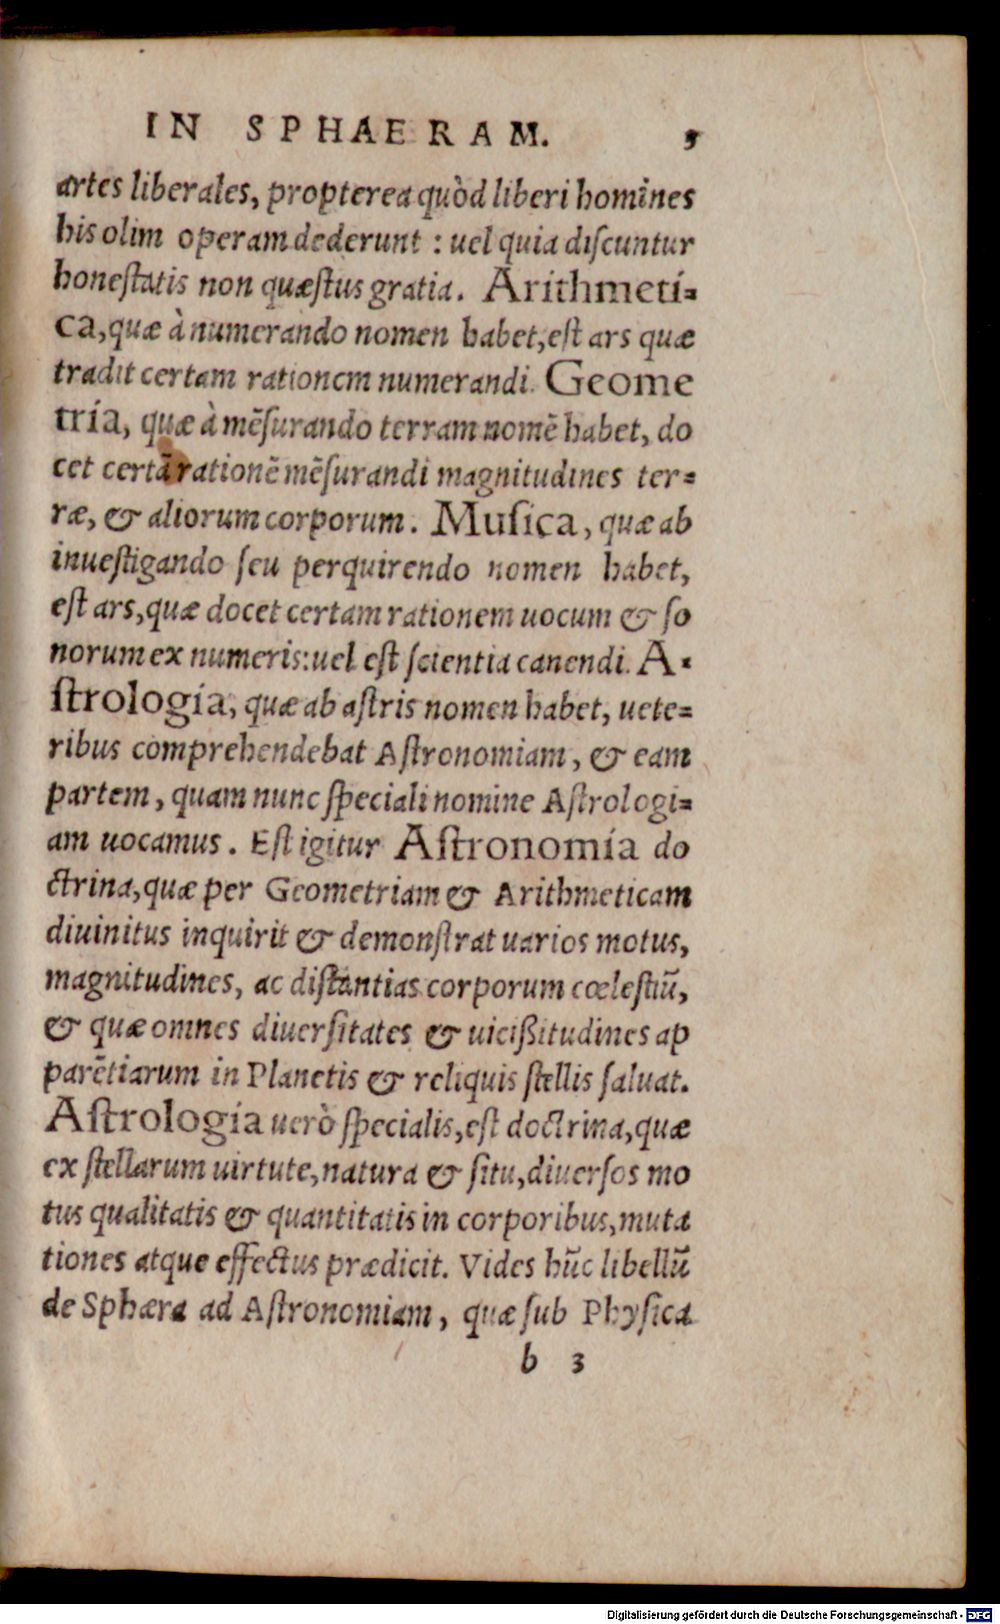 IN SPHAERAM. 5
artes liberales, propterea quòd liberi homines
his olim operam dederunt : uel quia discuntur
honestatis non quæstus gratia. Arithmeti=
ca, quæ à numerando nomen habet, est ars quæ
tradit certam rationem numerandi. Geome
tria, quæ à mẽsurando terram nomẽ habet, do
cet certã rationẽ mẽsurandi magnitudines ter=
ræ, & aliorum corporum. Musica, quæ ab
inuestigando seu perquirendo nomen habet,
est ars, quæ docet certam rationem uocum & so
norum ex numeris: uel est scientia canendi. A=
strologia, quæ ab astris nomen habet, uete=
ribus comprehendebat Astronomiam, & eam
partem, quam nunc speciali nomine Astrologi=
am uocamus. Est igitur Astronomía do
ctrina, quæ per Geometriam & Arithmeticam
diuinitus inquirit & demonstrat uarios motus,
magnitudines, ac distantias corporum cœlestiũ,
& quæ omnes diuersitates & uicißitudines ap
parẽtiarum in Planetis & reliquis stellis saluat.
Astrología uerò specialis, est doctrina, quæ
ex stellarum uirtute, natura & situ, diuersos mo
tus qualitatis & quantitatis in corporibus, muta
tiones atque effectus prædicit. Vides hũc libellũ
de Sphæra ad Astronomiam, quæ sub Physica
b 3
Digitalisierung gefördert durch die Deutsche Forschungsgemeinschaft - DFG